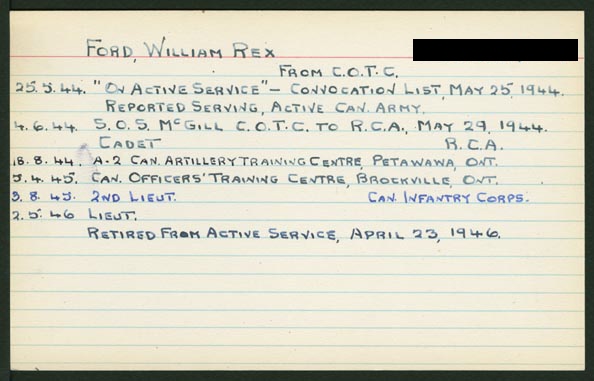 FORD, WILLIAM REX
FROM C.O.T.C.
25.5.44. "ON ACTIVE SERVICE" - CONVOCATION LIST, MAY 25, 1944.
REPORTED SERVING, ACTIVE CAN. ARMY.
4.6.44. S.O.S. MCGILL C.O.T.C. TO R.C.A., MAY 29, 1944.
CADET R.C.A.
18.8.44. A-2 CAN. ARTILLERY TRAINING CENTRE, PETAWAWA, ONT.
5.4.45. CAN. OFFICERS' TRAINING CENTRE, BROCKVILLE, ONT.
3.8.45. 2ND LIEUT. CAN. INFANTRY CORPS.
2.5.46 LIEUT.
RETIRED FROM ACTIVE SERVICE, APRIL 23, 1946.